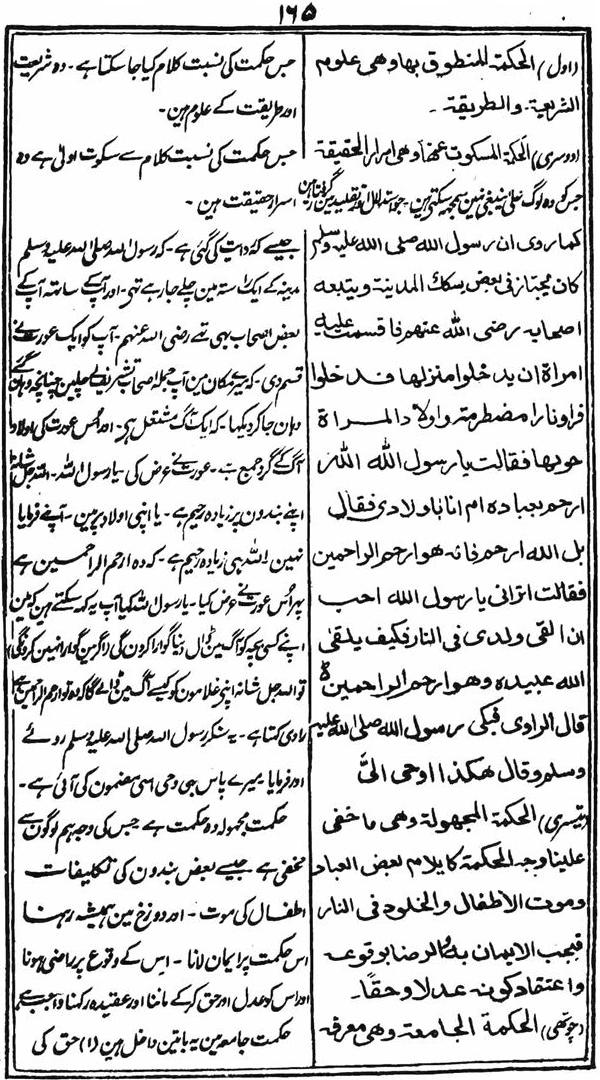 ۱۶۵
(اول) الحکمة المنطوق بها وهی علوم
الشریعة والطریقة۔
(دوسری) الحکمة المسکوت عنها وهی اسرار الحقیقة
کما روی ان رسول الله صلی الله علیه وسلم
کان مجتاز فی بعض سکک المدینة ویتبعه
اصحابه رضی الله عنهم فاقسمت علیه
امراة ان یدخلوا منزلها فدخلوا
فراونارا مضطرمة واولاد المراة
حولها فقالت یارسول الله الله
ارحم بعباده ام انا باولادی فقال
بل الله ارحم فانه هو ارحم الراحمین
فقالت اترانی یارسول الله احب
ان القی ولدی فی النار فکیف یلقی
الله عبیده وهو ارحم الراحمین
قال الراوی فبکی رسول الله صلی الله علیه
وسلم وقال هکذا اوحی الیّ
(تیسری) الحکمة المجهولة وهی ماخفی
علینا وجه الحکمة کایلام بعض العباد
وموت الاطفال والخلود فی النار
فیجب الایمان به والرضا بوقوعه
واعتقاد کونه عدلا وحقا۔
(چوتھی) الحکمة الجامعة وهی معرفة
جس حکمت کی نسبت کلام کیا جا سکتا ہے۔ وہ شریعت
اور طریقت کے علوم ہین۔
جس حکمت کی نسبت کلام سے سکوت اولیٰ ہے وہ
اسرار حقیقت ہین۔
جیسے کہ روایت کی گئی ہے۔ کہ رسول اللہ صلی اللہ علیہ وسلم
مدینہ کے ایک راستہ مین چلے جا رہے تہی۔ اور آپ کے ساتہ آپ کے
بعض اصحاب بہی تہے رضی اللہ عنہم۔ آپ کو ایک عورت نے
قسم دی۔ کہ میرے مکان مین آپ جملہ اصحاب تشریف لے چلین چنانچہ وہان گئے
وہان جا کر دیکہا۔ کہ ایک آگ مشتعل ہی۔ اور اُس عورت کی اولاد
آگ کے گرد جمع ہے۔ عورت نے عرض کی۔ یارسول اللہ۔ اللہ جل شانہ
اپنے بندون پر زیادہ رحیم ہے۔ یا اپنی اولاد پر مین۔ آپنے فرمایا
نہین اللہ ہی زیادہ رحیم ہے۔ کہ وہ ارحم الراحمین ہے
پہر اُس عورت نے عرض کیا۔ یارسول اللہ کیا آپ یہ کہہ سکتے ہین کہ مین
اپنے کسی بچہ کو آگ مین ڈال دینا گوارا کرون گی (اگر مین گوارا نہین کرونگی)
تو اللہ جل شانہ اپنی غلامون کو کیسے آگ مین ڈالے گا کہ وہ تو ارحم الراحمین ہے
راوی کہتا ہے۔ یہ سنکر رسول اللہ صلی اللہ علیہ وسلم روئے
اور فرمایا میرے پاس بہی وحی اسی مضمون کی آئی ہے۔
حکمت مجہولہ وہ حکمت ہے جس کی وجہ ہم لوگون سے
مخفی ہے جیسے بعض بندون کی تکلیفات
اطفال کی موت۔ اور دوزخ مین ہمیشہ رہنا
اس حکمت پر ایمان لانا۔ اس کے وقوع پر راضی ہونا
اور اس کو عدل اور حق کرکے ماننا اور عقیدہ رکہنا واجب ہے
حکمت جامعہ مین یہ باتین داخل ہین (۱) حق کی